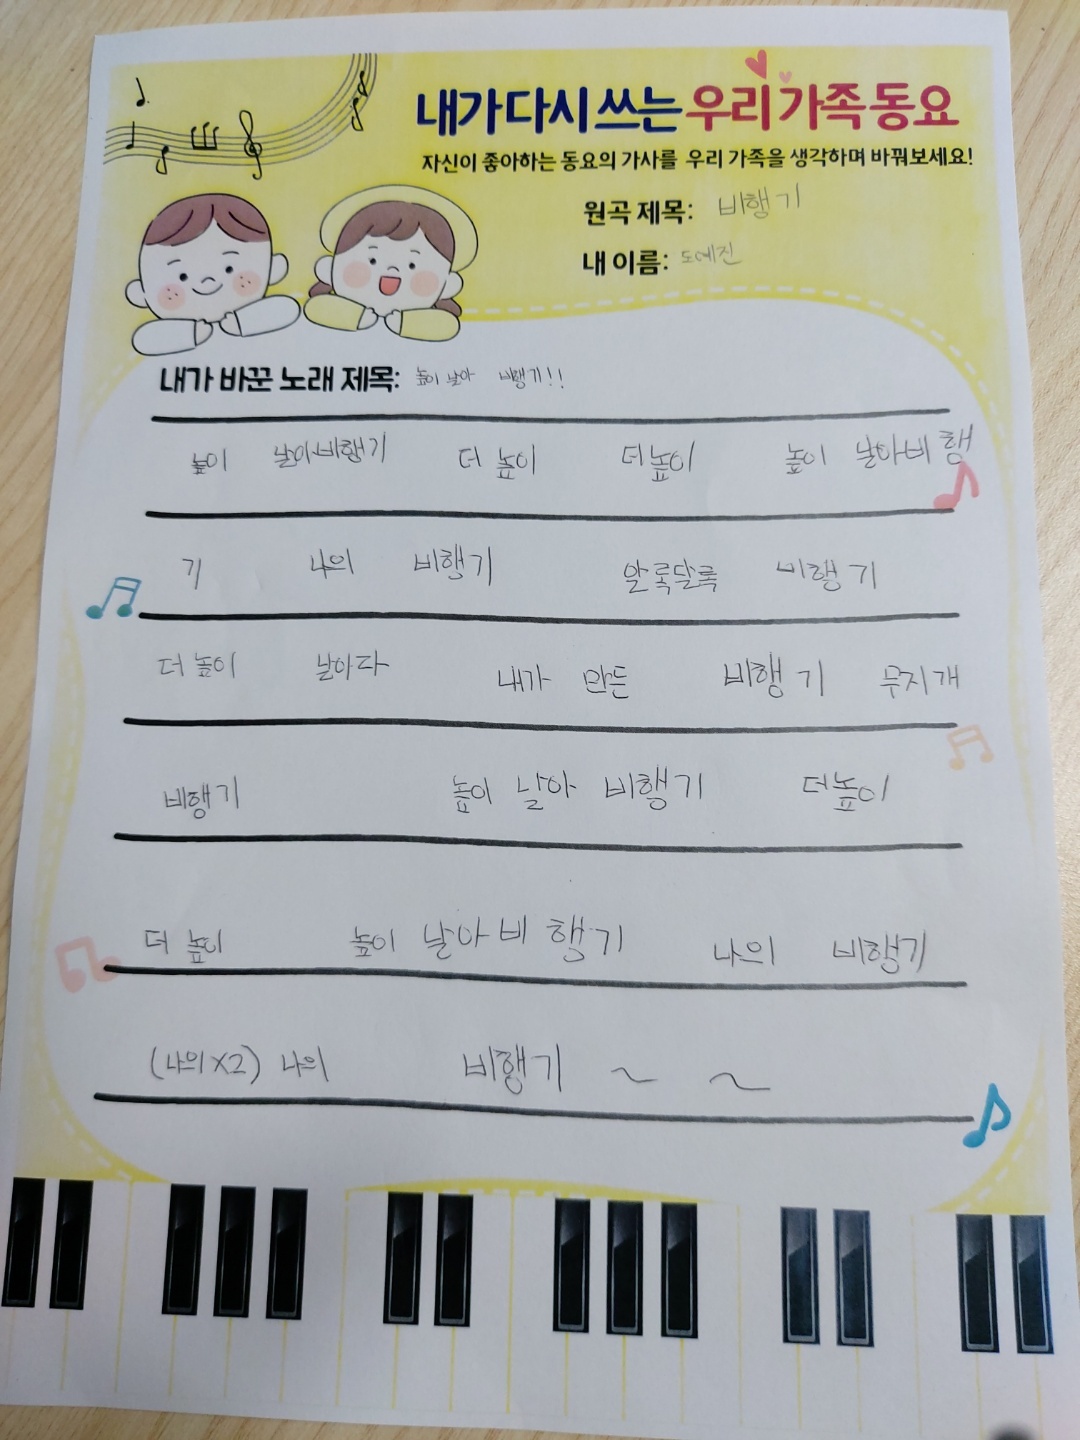 내가 다시 쓰는 우리 가족 동요
자신이 좋아하는 동요의 가사를 우리 가족을 생각하며 바꿔보세요!
원곡 제목: 비행기
내 이름: 도예진
내가 바꾼 노래 제목: 높이 날아 비행기!!
높이 날아 비행기 더 높이 더 높이 높이 날아 비행
기 나의 비행기 알록달록 비행기
더 높이 날아다 내가 만든 비행기 무지개
비행기 높이 날아 비행기 더 높이
더 높이 높이 날아 비행기 나의 비행기
(나의 X2) 나의 비행기 ~ ~